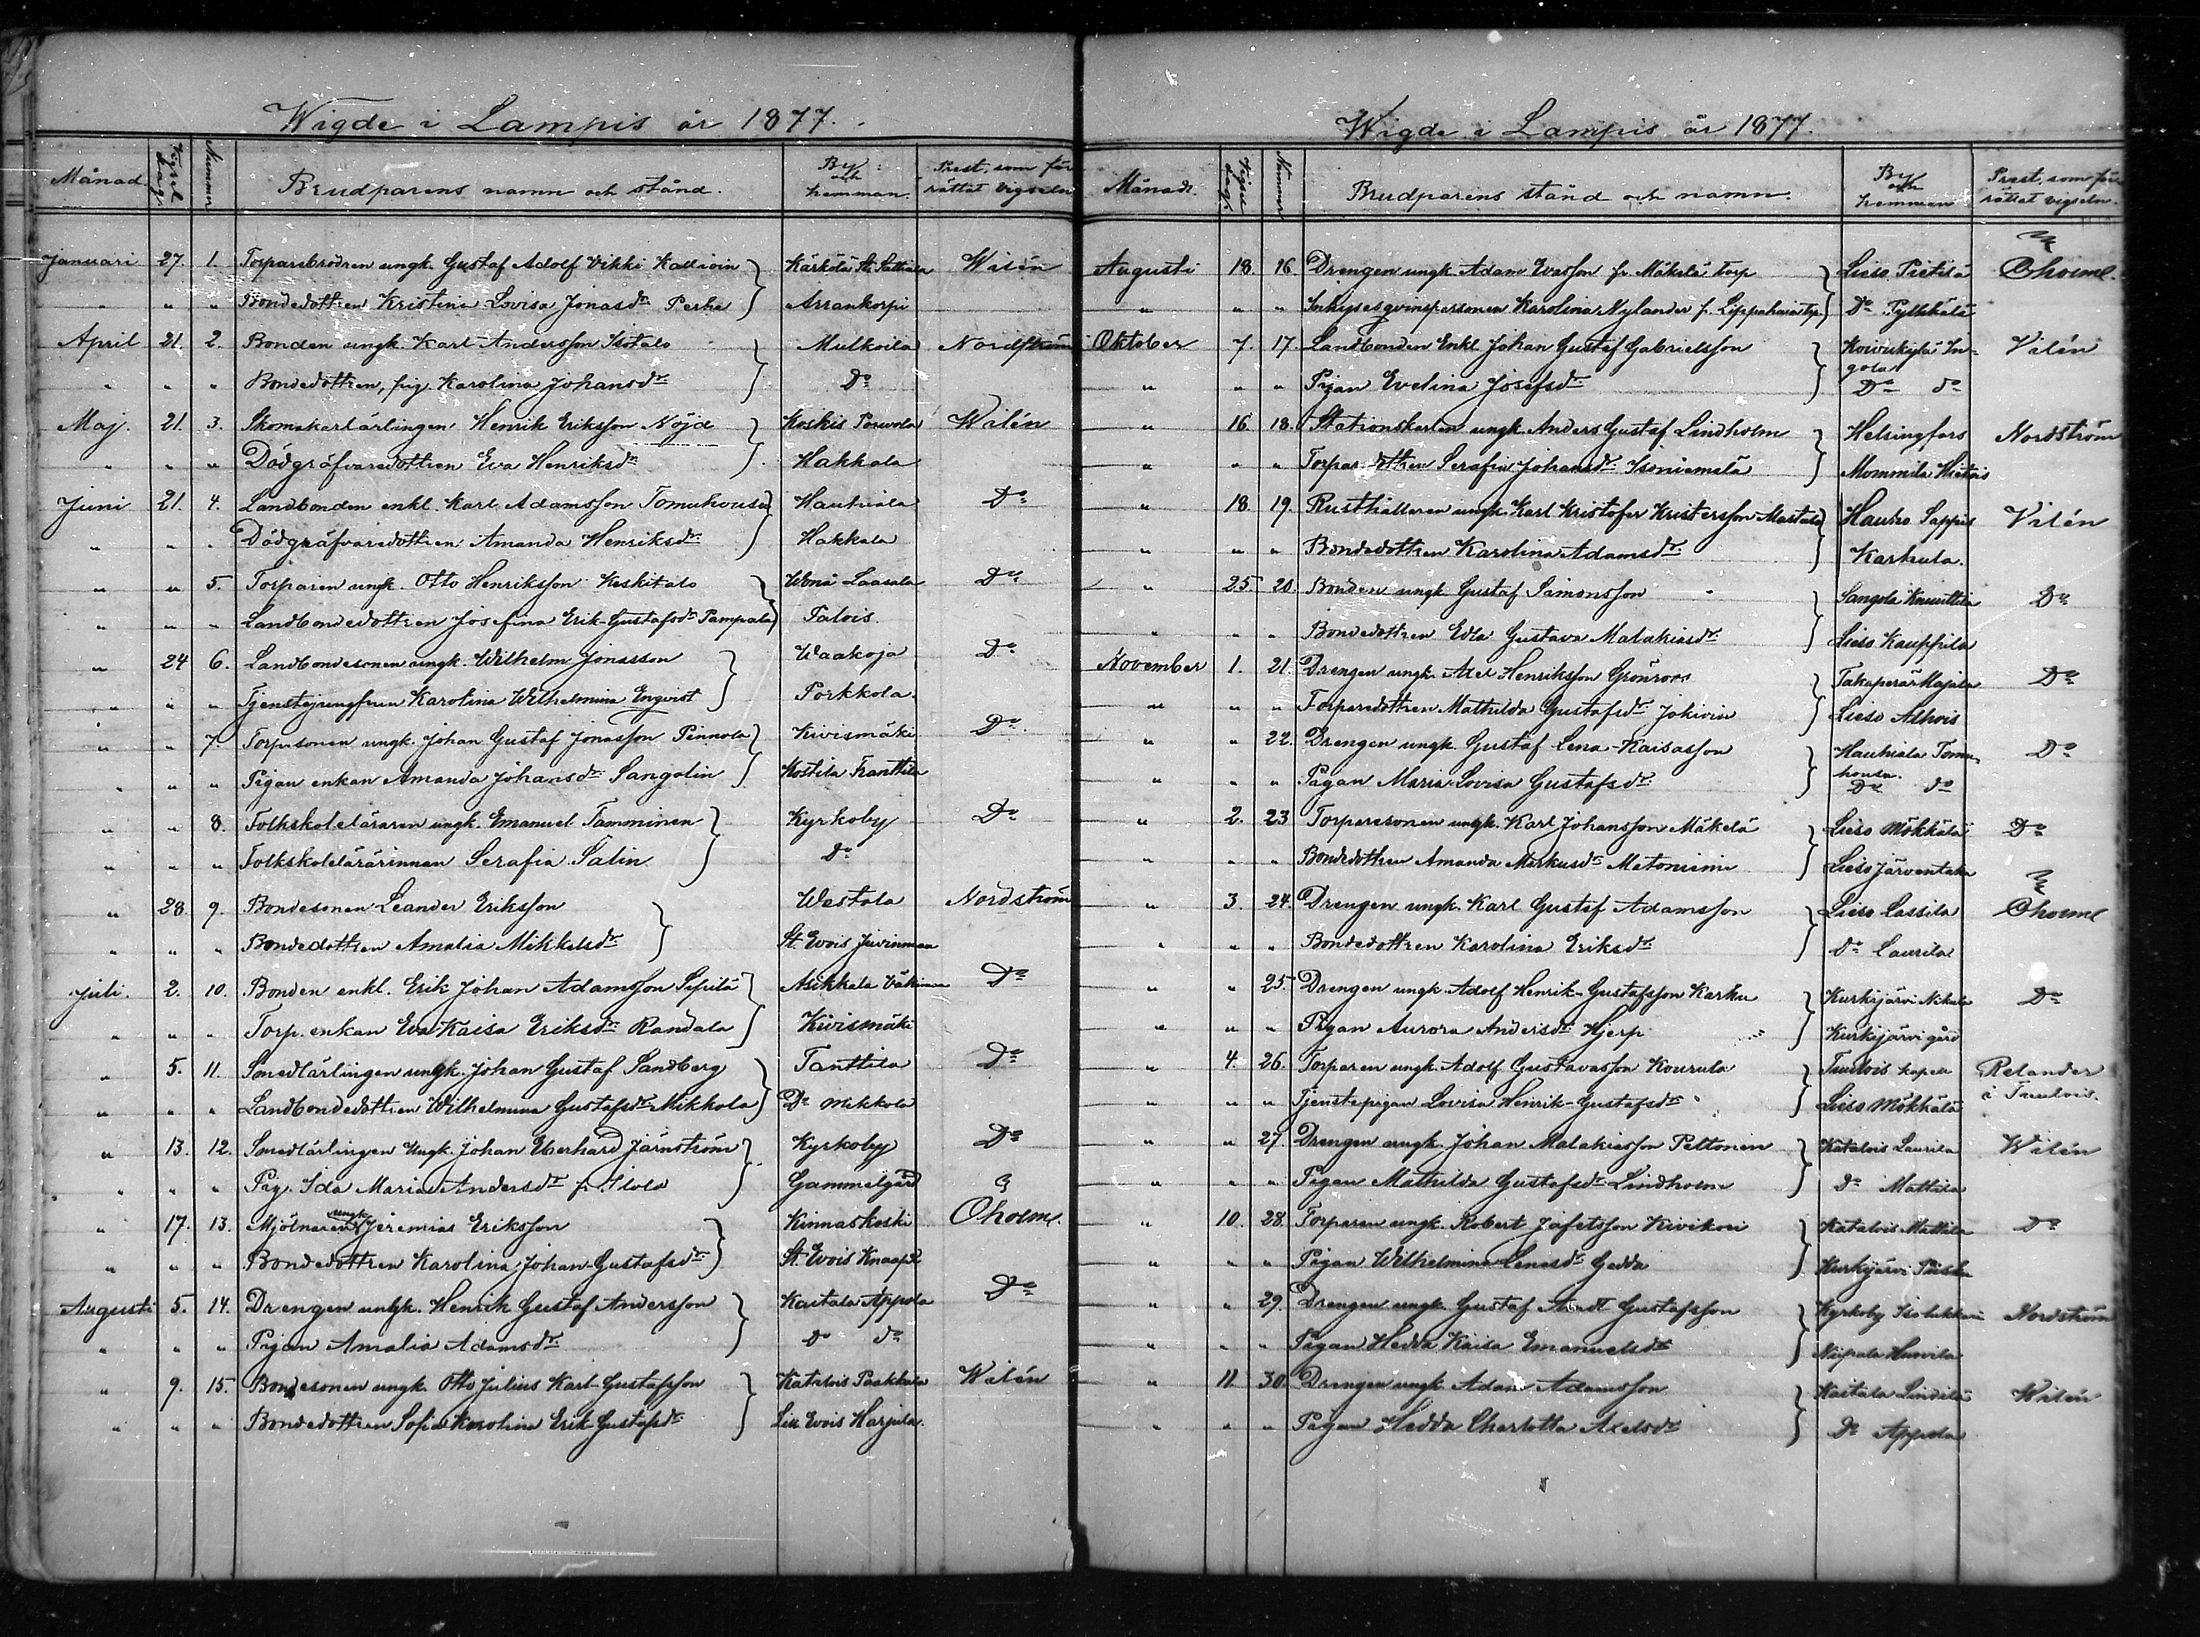 Wigde i Lampis år 1877.
Månad. Vigsel dag. Nummer Brudparens namn och stånd. By och hemman. Prest, som förrättat vigseln
Januari 27. 1. Torparebrodren ungk. Gustaf Adolf Vikki Kallioin Kärkölä Wilén
" " " Bondedottren Kristina Lovisa Jonasdr Perhe Arrankorpi
April 21. 2. Bonden ungk. Karl Andersson Isotalo Mulkoila Nordström
" " " Bondedottren, pig. Karolina Johansdr Do
Maj. 21. 3. Skomakarlärlingen Henrik Eriksson Nöjd Koskis Porvola Wilén
" " " Dödgräfvaredottren Eva Henriksdr Hakkala
Juni 21. 4. Landbonden enkl. Karl Adamsson Tomuhousu Hauhiala Do
" " " Dödgräfvaredottren Amanda Henriksdr Hakkala
" " 5. Torparen ungk. Otto Henriksson Keskitalo Laasala Do
" " " Landbondedottren Josefina Erik-Gustafsdr Pampala Talois.
" 24 6. Landbondesonen ungk. Wilhelm Jonasson Waakoja Do
" " " Tjenstejungfrun Karolina Wilhelmina Enqvist Porkkola.
" " 7. Torparesonen ungk. Johan Gustaf Jonasson Pennola Kivismäki Do
" " " Pigan enkan Amanda Johansdr Sangolin Kostila Tranttila
" " 8. Folkskoleläraren ungk. Emanuel Tamminen Kyrkoby Do
" " " Folkskolelärarinnan Serafia Salin Do
" 28 9. Bondesonen Leander Eriksson Westola Nordström
" " " Bondedottren Amalia Mikkelsdr St. Evois
Juli. 2. 10. Bonden enkl. Erik Johan Adamsson Sipilä Asikkala Do
" " " Torp. enkan Eva Kaisa Eriksdr Randala Kivismäki
" 5. 11. Smedlärlingen ungk. Johan Gustaf Sandberg Tanttila Do
" " " Landbondedottren Wilhelmina Gustafsdr Mikkola Do Mikkola
" 13. 12. Smedlärlingen Ungk. Johan Eberhard Järnström Kyrkoby Do
" " " Pig. Ida Maria Andersdr fr Ilola Gammelgård
" 17. 13. Mjölnaren ungk. Jeremias Eriksson Kinnaskoski Oholme.
" " " Bondedottren Karolina Johan-Gustafsdr St. Evois
Augusti 5. 14. Drengen ungk. Henrik Gustaf Andersson Kaitala Appola Do
" " " Pigan Amalia Adamsdr do do
" 9. 15. Bondesonen ungk. Otto Julius Karl-Gustafsson Katalois Paakkola Wilén
" " " Bondedottren Sofia Karolina Erik-Gustafsdr Evois Harjula.
Wigde i Lampis år 1877.
Månad. Vigsel dag. Nummer Brudparens stånd och namn. By och hemman Prest, som förrättat vigseln.
Augusti 18. 16. Drengen ungk. Adam Evasson fr Mäkelä torp Lieso Pietilä Oholme.
" " " Inhysesqvinspersonen Karolina Nylander Do
Oktober 7. 17. Landbonden Enkl. Johan Gustaf Gabrielsson Koivukylä Ingola Vilén
" " " Pigan Evelina Josefsdr Do do
" 16. 18. Stationskarlen ungk. Anders Gustaf Lindholm Helsingfors Nordström
" " " Torparedottren Serafia Johansdr Isoniemelä Mommila Hietois
" 18. 19. Rusthållaren ungk. Karl Kristofer Kristersson Mastala Hauho Sappis Vilén
" " " Bondedottren Karolina Adamsdr Karkula.
" 25. 20. Bonden ungk. Gustaf Simonsson Sangola Knuuttila Do
" " " Bondedottren Edla Gustava Malakiasdr Lieso Kauppila
November 1. 21. Drengen ungk. Axel Henriksson Grönroos Takaperä Majala Do
" " " Torparedottren Mathilda Gustafsdr Jokivin Lieso Alhois
" " 22. Drengen ungk. Gustaf Lena-Kaisasson Hauhiala Tomuhousu. Do
" " " Pigan Maria Lovisa Gustafsdr Do do
" 2. 23 Torparesonen ungk. Karl Johansson Mäkelä Lieso Mökkälä Do
" " " Bondedottren Amanda Markusdr Matoniemi Lieso Järventaka
" 3. 24. Drengen ungk. Karl Gustaf Adamsson Lieso Lassila Oholme
" " " Bondedottren Karolina Eriksdr Do Laurila
" " 25. Drengen ungk. Adolf Henrik-Gustafsson Karhu Kurkijärvi Do
" " " Pigan Aurora Andersdr Hjerp Kurkijärvi gård
" 4. 26. Torparen ungk. Adolf Gustavasson Kourula Tuulois kapell Relander i Tuulois.
" " " Tjenstepigan Lovisa Henrik-Gustafsdr Lieso Mökkälä
" " 27. Drengen ungk. Johan Malakiasson Peltonen Katalois Laurila Wilén
" " " Pigan Mathilda Gustafsdr Lindholm Do Mattila
" 10. 28. Torparen ungk. Robert Jafetsson Kivikori Katalois Mattila Do
" " " Pigan Wilhelmina Lenasdr Gedda Kurkijärvi
" " 29. Drengen ungk. Gustaf Arndt Gustafsson Kyrkoby Nordström
" " " Pigan Hedda Kaisa Emanuelsdr
" 11. 30. Drengen ungk. Adam Adamsson Kaitala Wilén
" " " Pigan Hedda Charlotta Axelsdr Do Appola